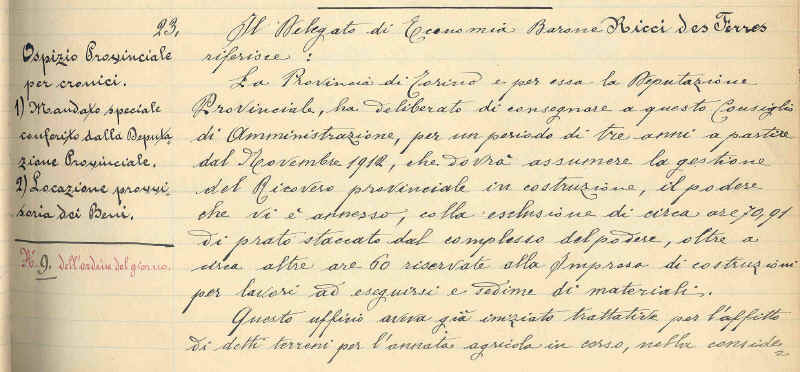 23.
Ospizio Provinciale
per cronici.
1) Mandato speciale
conferito dalla Deputa-
zione Provinciale.
2) Locazione provvi-
soria dei Beni.
N.º 9. dell'ordine del giorno.
Il Delegato di Economia Barone Ricci des Ferres
riferisce :
La Provincia di Torino e per essa la Deputazione
Provinciale, ha deliberato di consegnare a questo Consiglio
di Amministrazione, per un periodo di tre anni a partire
dal Novembre 1912, che dovrà assumere la gestione
del Ricovero provinciale in costruzione, il podere
che vi è annesso, colla esclusione di circa are 70,91
di prato staccato dal complesso del podere, oltre a
circa altre are 60 riservate alla Impresa di costruzioni
per lavori ad eseguirsi e sedime di materiali.
Questo ufficio aveva già iniziato trattative per l'affitto
di detti terreni per l'annata agricola in corso, nella conside-